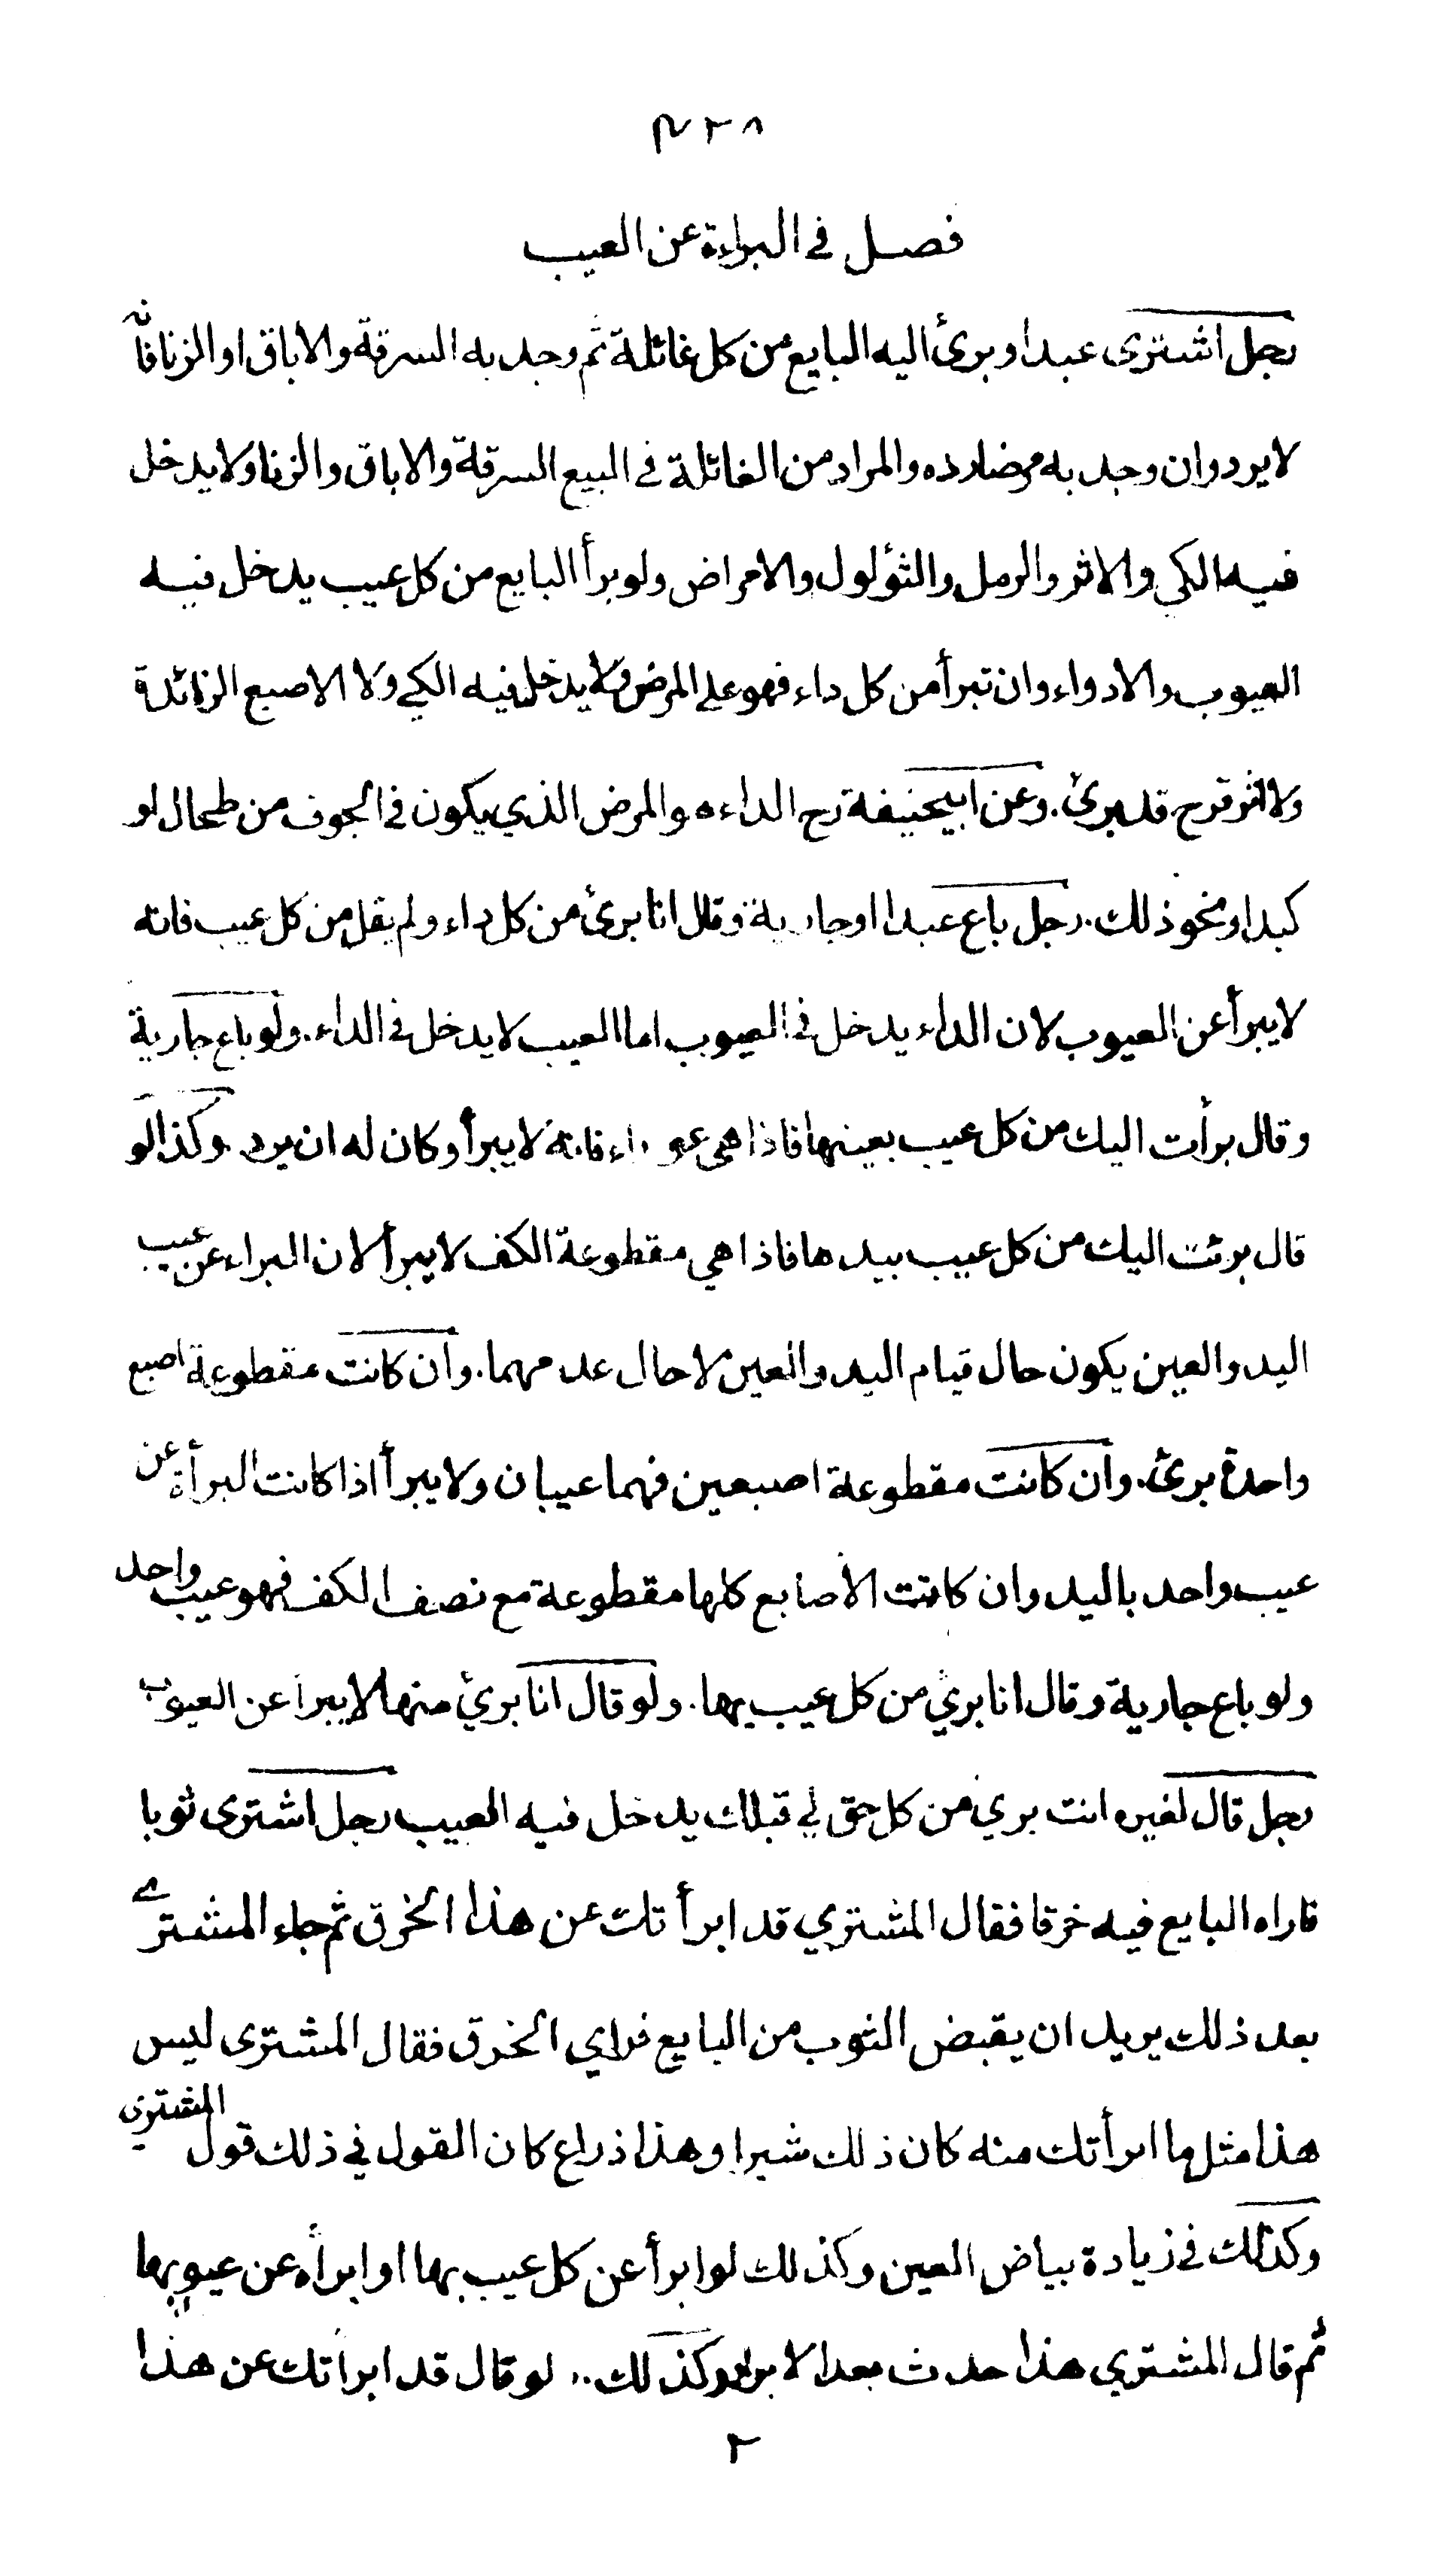 ٤٢٨
فصل في البراءة عن العيب
رجل اشترى عبدا وبرئ اليه البايع من كل غائلة ثم وجد به السرقة والاباق او الزنا فانه
لا يرد وان وجد به مرضا رده والمراد من الغائلة في البيع السرقة والاباق والزنا ولا يدخل
فيه الكي والاثر والرمل والثؤلول والامراض ولو برأ البايع من كل عيب يدخل فيه
العيوب والادواء وان تبرأ من كل داء فهو على المرض ولا يدخل فيه الكي ولا الاصبع الزائدة
ولا اثر قرح قد برئ. وعن ابيحنيفة رح الداء ه والمرض الذي يكون في الجوف من طحال او
كبد او نحو ذلك. رجل باع عبدا او جارية وقال انا برئ من كل داء ولم يقل من كل عيب فانه
لا يبرأ عن العيوب لان الداء يدخل في العيوب اما العيب لا يدخل في الداء. ولو باع جارية
وقال برأت اليك من كل عيب بعينها فاذا هي عوراء فانه لا يبرأ وكان له ان يرد. وكذا لو
قال برئت اليك من كل عيب بيدها فاذا هي مقطوعة الكف لا يبرأ لان البراء عن عيب
اليد والعين يكون حال قيام اليد والعين لا حال عدمهما. وان كانت مقطوعة اصبع
واحدة برئ. وان كانت مقطوعة اصبعين فهما عيبان ولا يبرأ اذا كانت البرأة عن
عيب واحد باليد وان كانت الأصابع كلها مقطوعة مع نصف الكف فهو عيب واحد
ولو باع جارية وقال انا بريء من كل عيب بها. ولو قال انا بريئ منها لا يبرأ عن العيوب
رجل قال لغيره انت بري من كل حق لي قبلك يدخل فيه العيب رجل اشترى ثوبا
فاراه البايع فيه خرقا فقال المشتري قد ابرأتك عن هذا الخرق ثم جاء المشتري
بعد ذلك يريد ان يقبض الثوب من البايع فراي الخرق فقال المشترى ليس
هذا مثل ما ابرأتك منه كان ذلك شبرا وهذا ذراع كان القول في ذلك قول المشتري
وكذلك في زيادة بياض العين وكذلك لو ابرأ عن كل عيب بها او ابرأه عن عيوبها
ثم قال المشتري هذا حدث بعد الابراء وكذلك.. لو قال قد ابرأتك عن هذا
٢